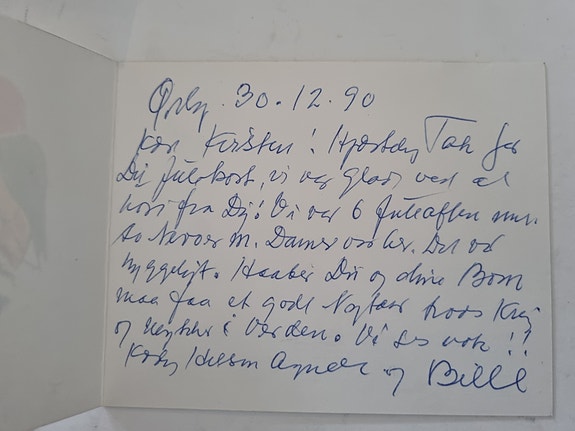 Ørby 30.12.90
Kære Kirsten! Hjertelig Tak for
Dit Julekort, vi var glade ved at
høre fra Dig! Vi var 6 Juleaften
to m. Damer var her. Det var
hyggeligt. Haaber Du og dine Børn
maa faa et godt Nytaar trods Krig
og i Verden. Vi ses nok!!
Kærlig Hilsen Agnete og Bille